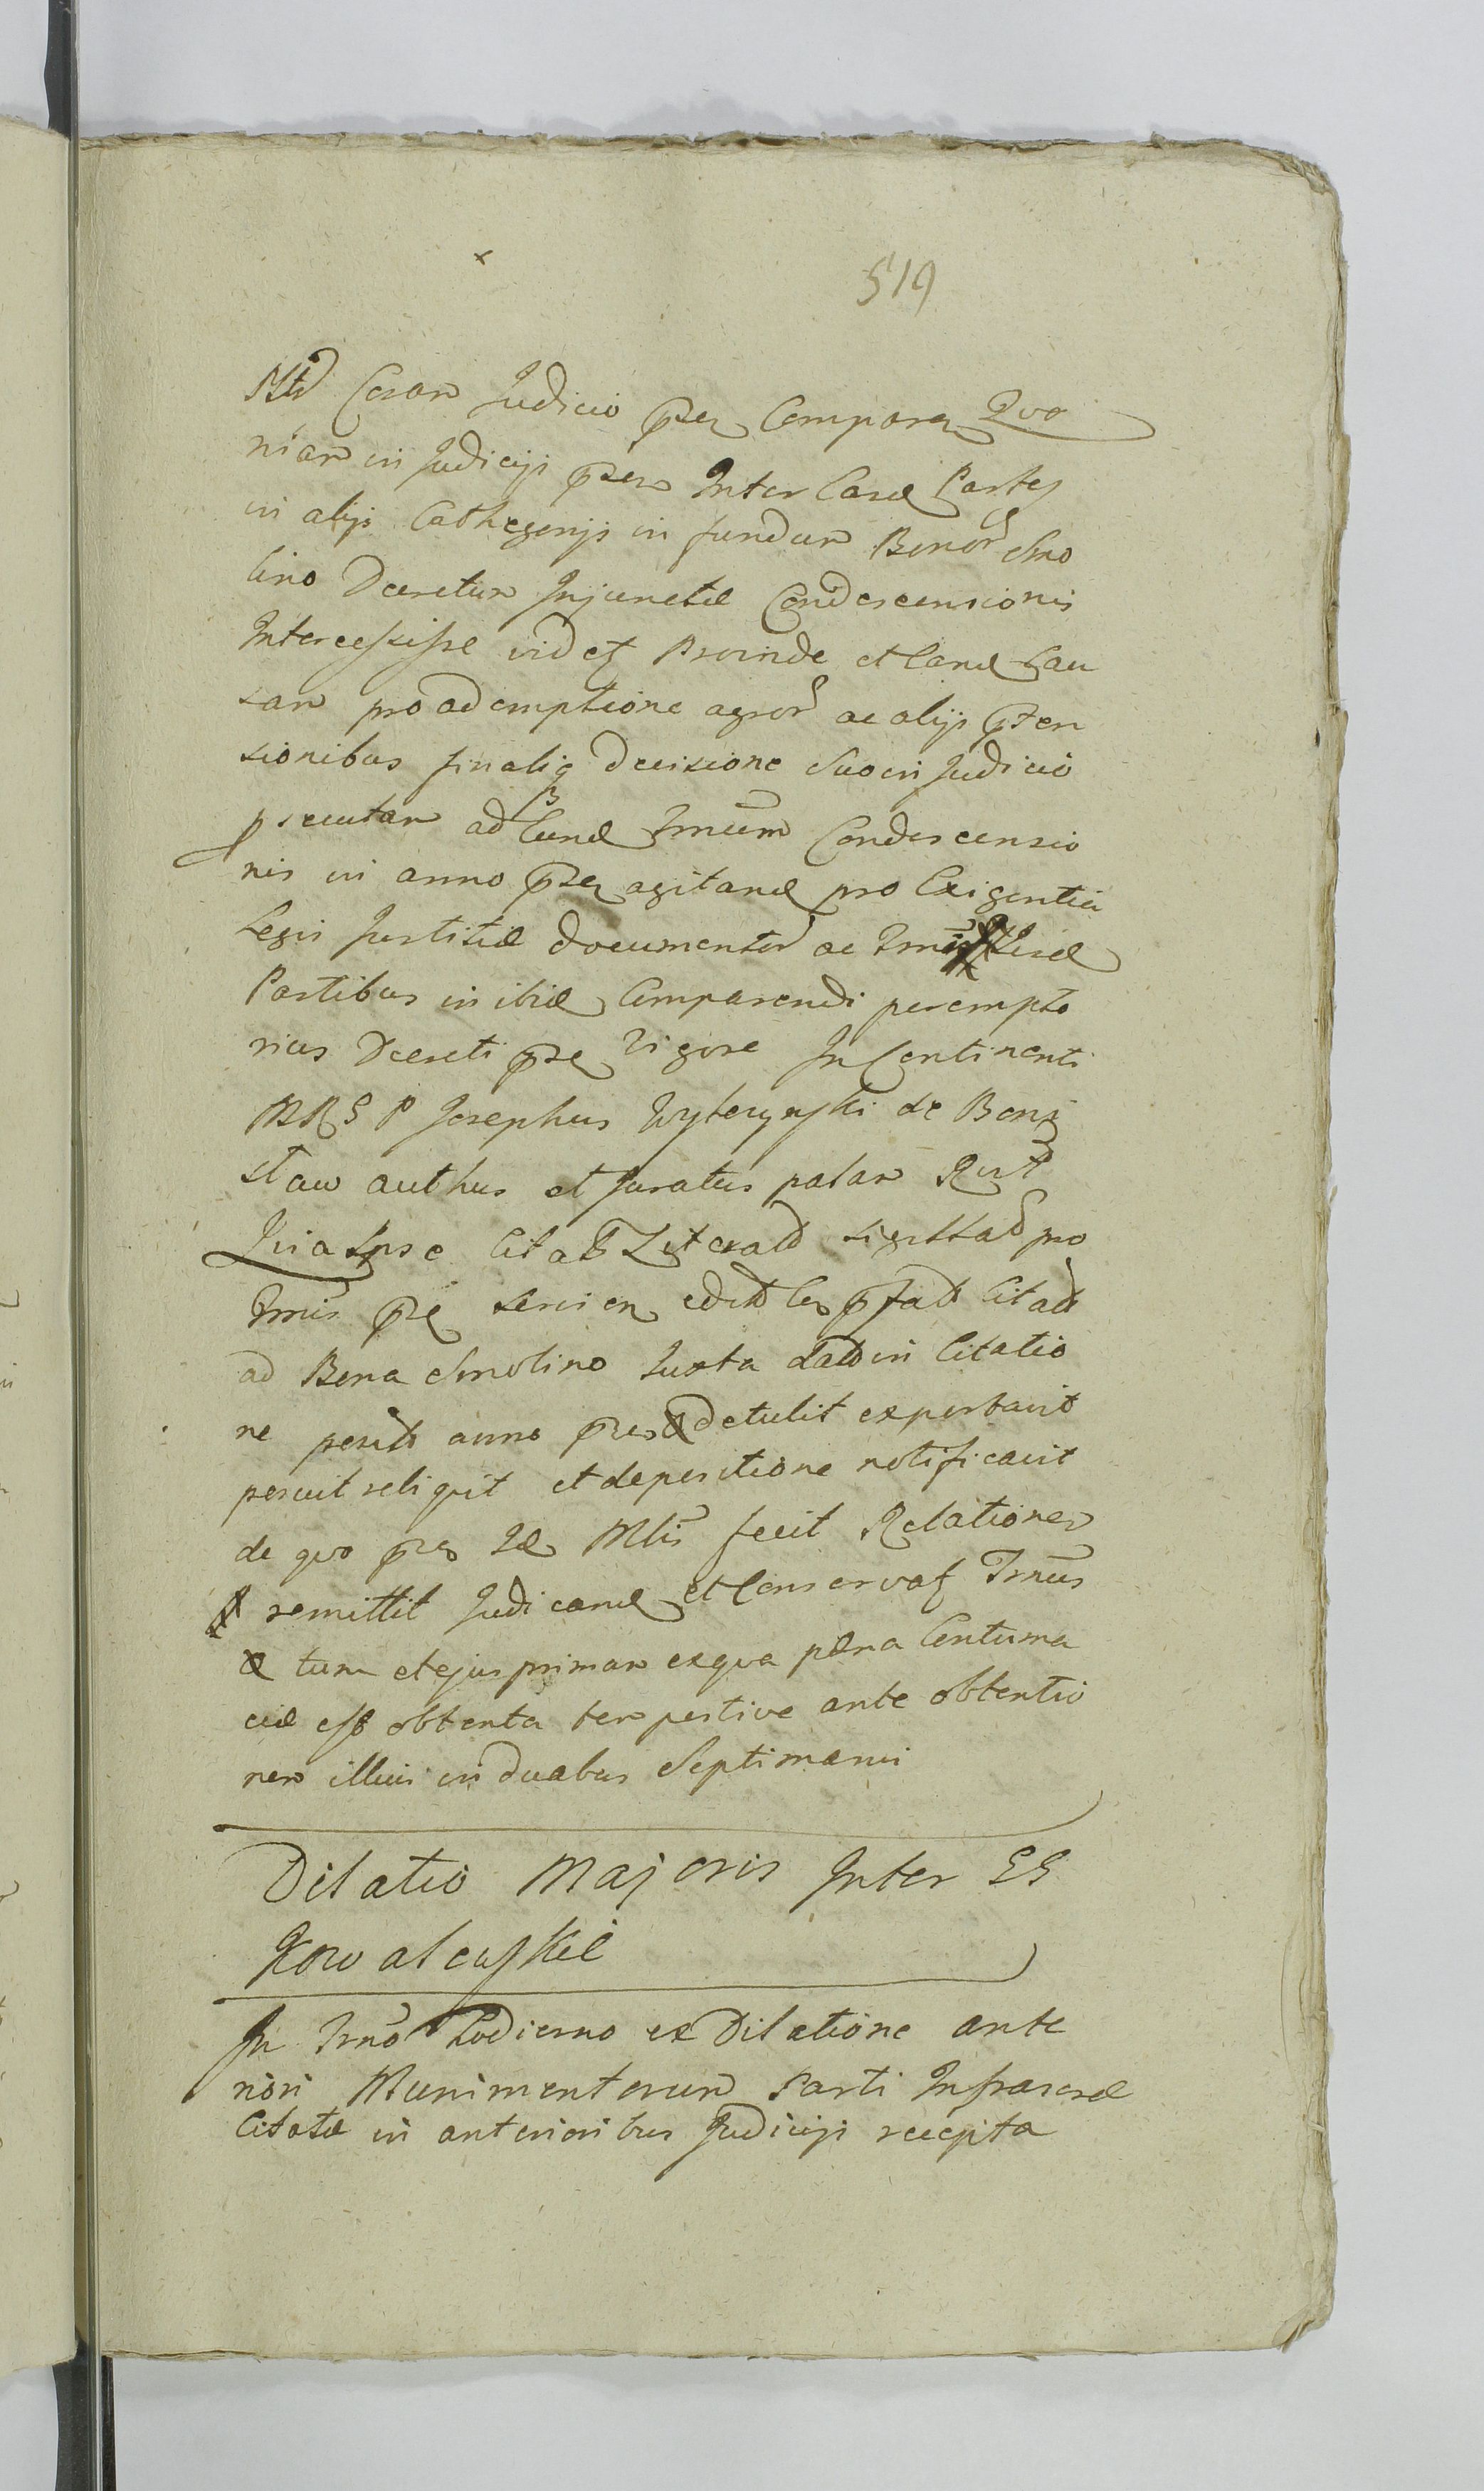 519
Coram Judicio Comparen Quo
niam in Judicijs Inter Easd Partes
in alijs Cathegorijs in fundum Bonor Smo
lino Decretum Injunctæ Condescensionis
Intercessisse videt Proinde et Cand Cau
sam pro ademptione agror ac alijs prten
sionibus finaliq Decisione Suo in Judicio
ad Eund Trnum Condescensio
nis in anno agitand pro Exigentia
Legis Justitiæ documentor ac
Partibus in ibid Comparendi perempto
rius Decreti Vigore In Continenti
Josephus Wyterzynski de Boni
slaw authus et Juratus palam
Quia Ipse Citat Literat sigillat pro
Trnis edit Citat
ad Bona Smolino Juxta dat in Citatio
ne posit anno detulit exportavit
posuit reliquit et depositione notificavit
de quo fecit Relationem
remittit Judicand et Conservat Trnus
tum et ejus primam ex qua pæna Contuma
ciæ est obtenta tempestive ante obtentio
nem illius in duabus Septimanis
Dilatio Majoris Inter GG
Kowalewskie
In Trno hodierno ex Dilatione ante
riori Munimentorum Parti Infrascrd
Citatæ in anterioribus Judicijs recepta